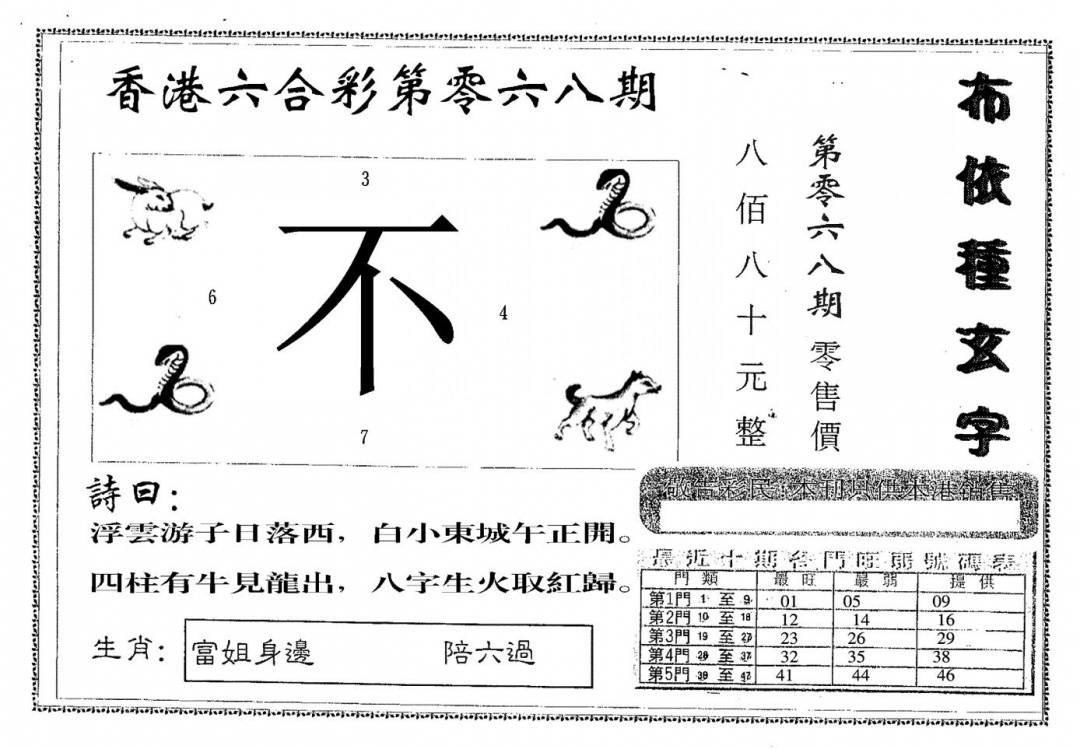 香港六合彩第零六八期
布依種玄字
第零六八期零售價
八佰八十元整
3
不
6
4
7
詩曰：
浮雲游子日落西，白小東城午正開。
四柱有牛見龍出，八字生火取紅歸。
生肖：富姐身邊 陪六過
敬告彩民：本刊只供本港銷售
最近十期各門旺弱號碼表
門類 最旺 最弱 提供
第1門 1 至 9 01 05 09
第2門 10 至 18 12 14 16
第3門 19 至 27 23 26 29
第4門 28 至 37 32 35 38
第5門 38 至 47 41 44 46